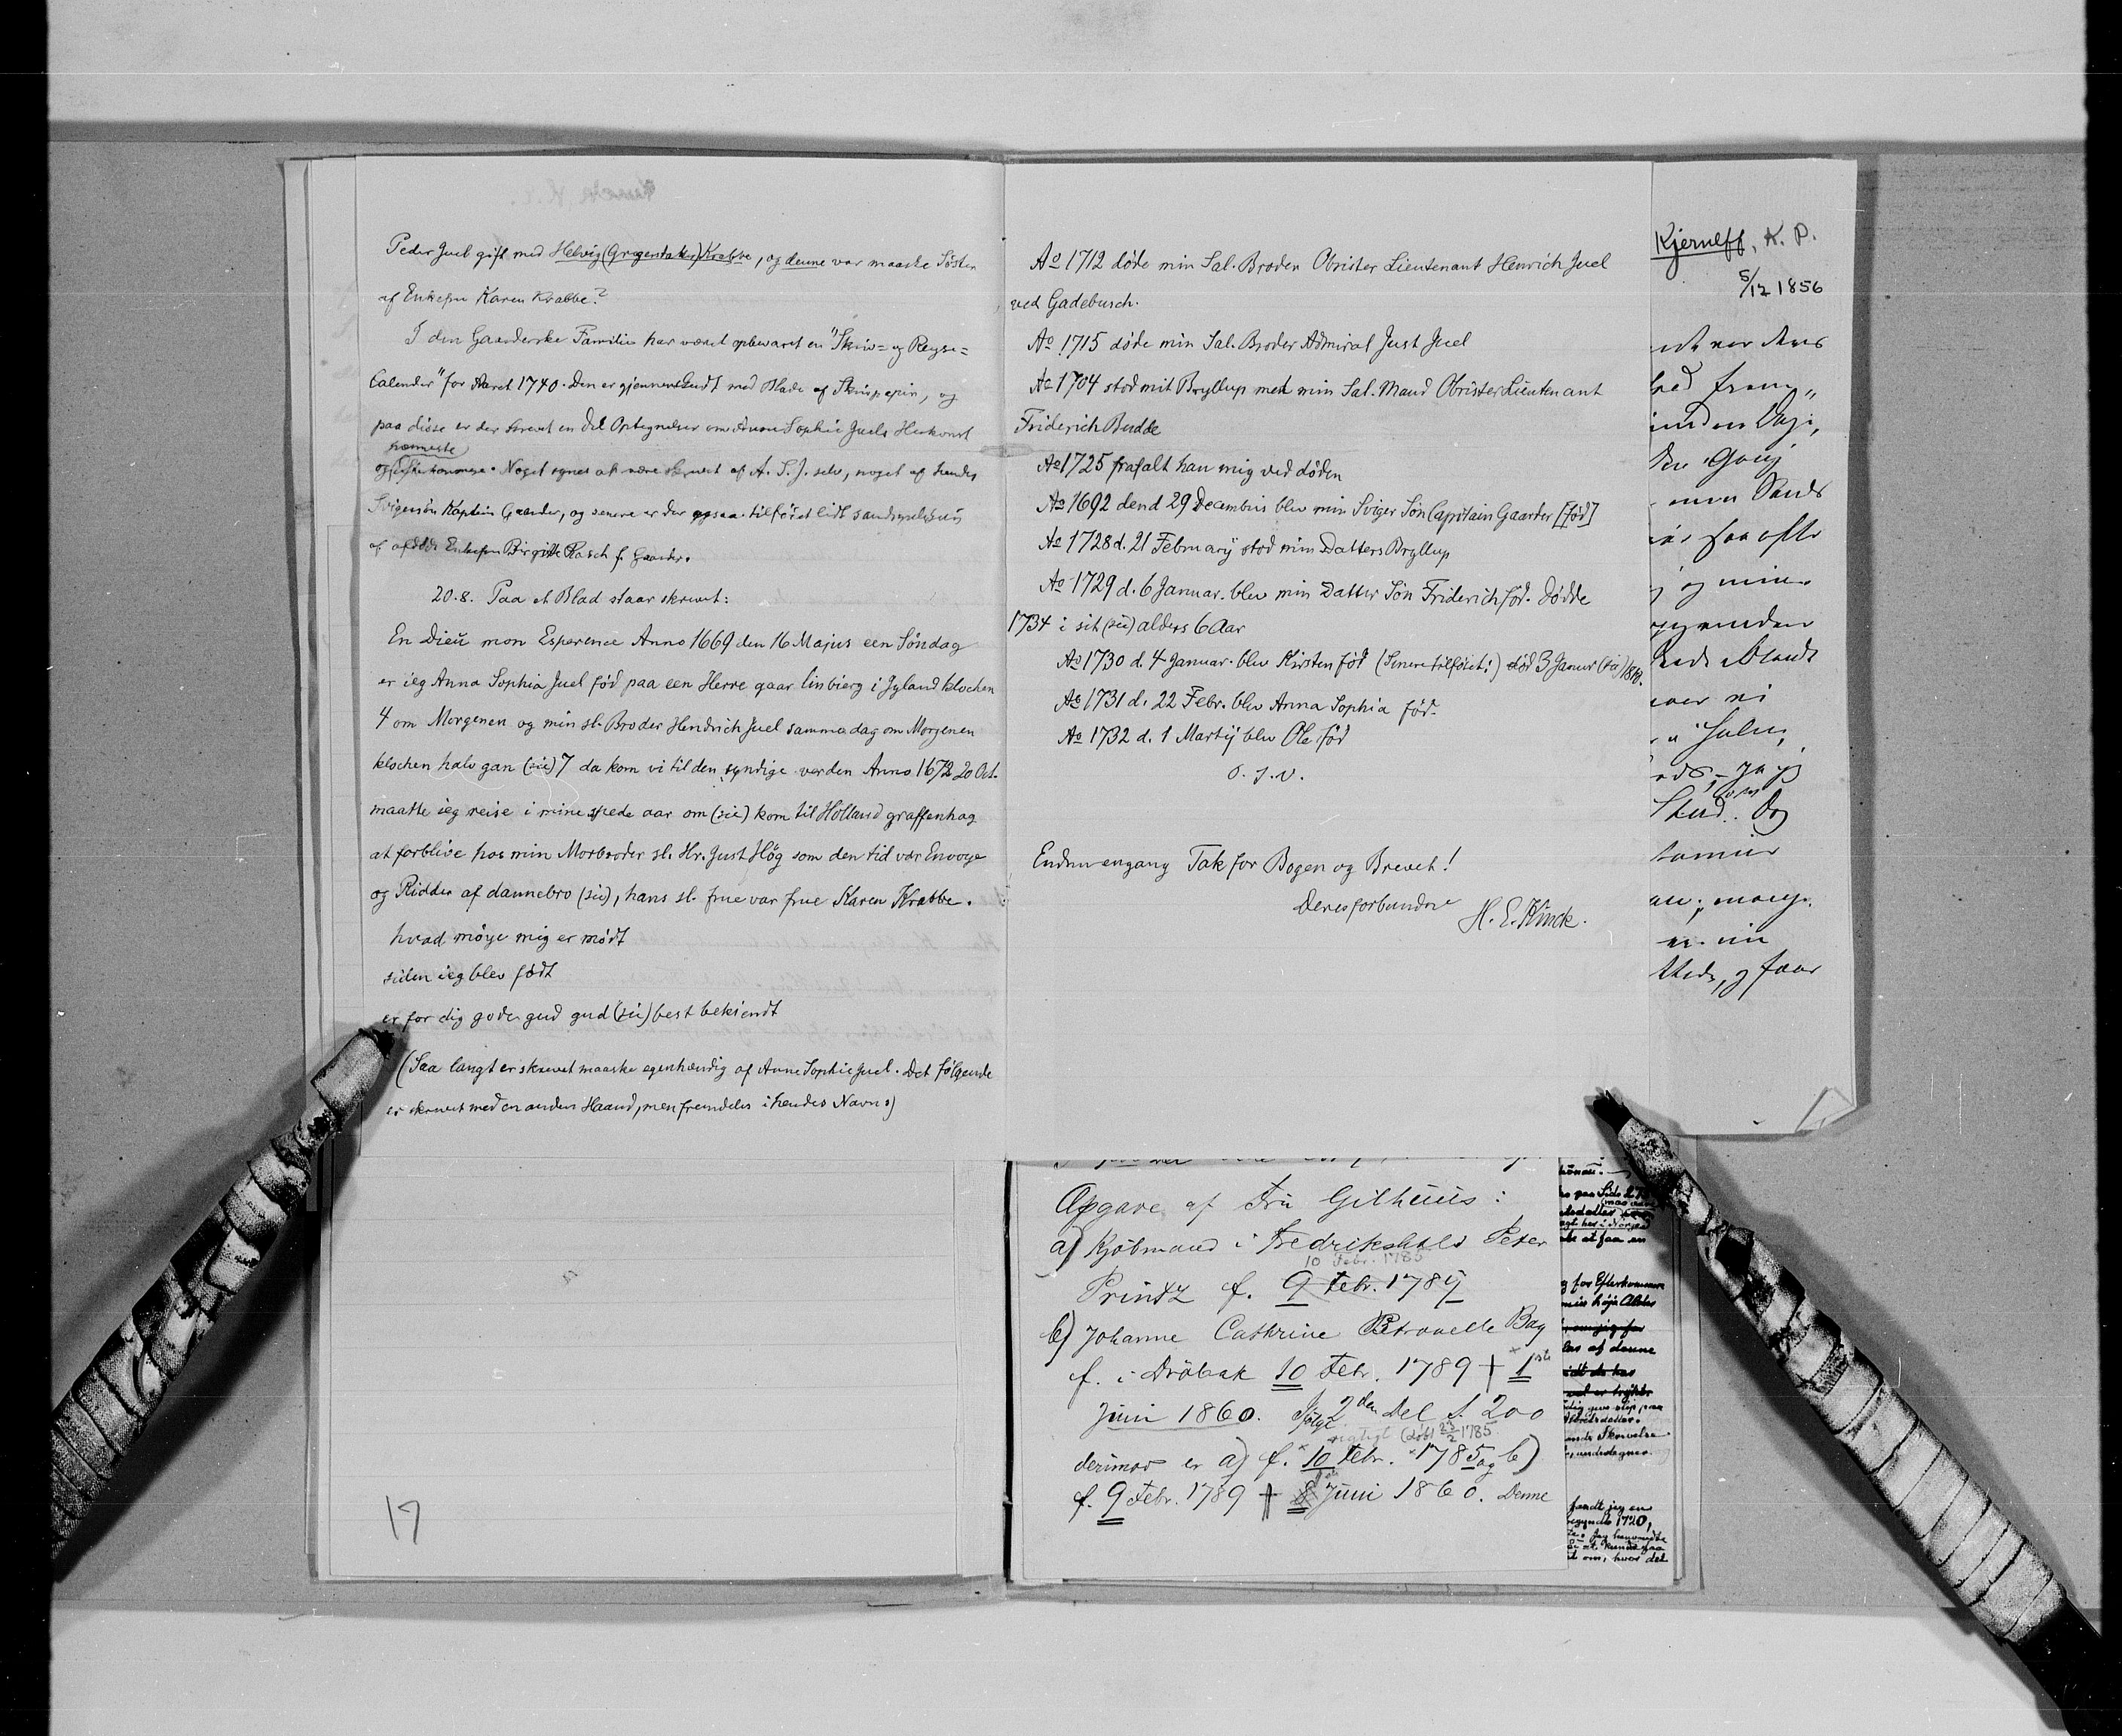 Peder Juel gift med Helvig (Griegersdatter) Krabbe, og denne var maaske Söster
af Enkefru Karen Krabbe?
I den Gaarderske Familie har været opbevaret en "Skriv= og Reyse=
Calender" for Aaret 1740. Den er gjennemskudt med Blade af Skrivpapir, og
paa disse er der skrevet en Del Optegnelser om Anne Sophie Juels Herkomst
nærmeste
og Efterkommere. Noget synes at være skrevet af A. S. J. selv, noget af hendes
Svigersön Kaptein Gaarder, og senere er der ogsaa tilföiet lidt sandsynligvis
af afdöde Enkefru Birgitte Rasch f. Gaarder.
20.8. Paa et Blad staar skrevet:
En Dieü mon Esperence Anno 1669 den 16 Majus een Söndag
er ieg Anna Sophia Juel föd paa een Herre gaar linbierg i Jyland klochen
4 om Morgenen og min sl. Broder Hendrich Juel samme dag om Morgenen
klochen halv gan (sic) 7 da kom vi til den syndige verden Anno 1672 20 Oct.
maatte ieg reise i mine spede aar om (sic) kom til Holland graffenhag
at forblive hos min Morbroder sl. Hr. Just Hög som den tid var Envoye
og Ridder af dannebro (sic), hans sl. frue var frue Karen Krabbe.
hvad möye mig er mödt
siden ieg blev födt
er for dig gode gud gud (sic) best bekiendt
(Saa langt er skrevet maaske egenhændig af Anne Sophie Juel. Det fölgende
er skrevet med en anden Haand, men fremdeles i hendes Navn:)
17
Ao 1712 döde min Sal. Broder Obrister Lieutenant Henrich Juel
ved Gadebusch.
Ao 1715 döde min Sal. Broder Admiral Just Juel
Ao 1704 stod mit Bryllup med min Sal. Mand Obrister Lieutenant
Friderich Budde
Ao 1725 frafalt han mig ved döden
Ao 1692 dend 29 Decembris blev min Sviger Sön Capitain Gaarder [föd]
Ao 1728 d. 21 Februarij stod min Datters Bryllup
Ao 1729 d. 6 Januar. blev min Datter Sön Friderich föd. dödde
1734 i sit (sic) alders 6 Aar
Ao 1730 d. 4 Januar. blev Kirsten föd (Senere tilföiet:) död 3 Januer (sic) 1810.
Ao 1731 d. 22 Febr. blev Anna Sophia föd.
Ao 1732 d. 1 Martij blev Ole föd
o. s. v.
Endnu engang Tak for Bogen og Brevet!
Deres forbundne
H. E. Kinck.
Kjerulff, K. P.
5/12 1856
Opgave af Fru Gilhuus:
a) Kjöbmand i Fredrikshald Peter
10 Febr. 1785
Printz f. 9 Febr. 1784
b) Johanne Cathrine Petronelle Bag
f. i Dröbak 10 Febr. 1789 † 1ste
Juni 1860. Ifølge 2den Del S. 200
rigtigt (döbt 23/2 1785
derimod er a) f. 10 Febr. 1785 og b)
f. 9 Febr. 1789 † 8 Juni 1860. Denne